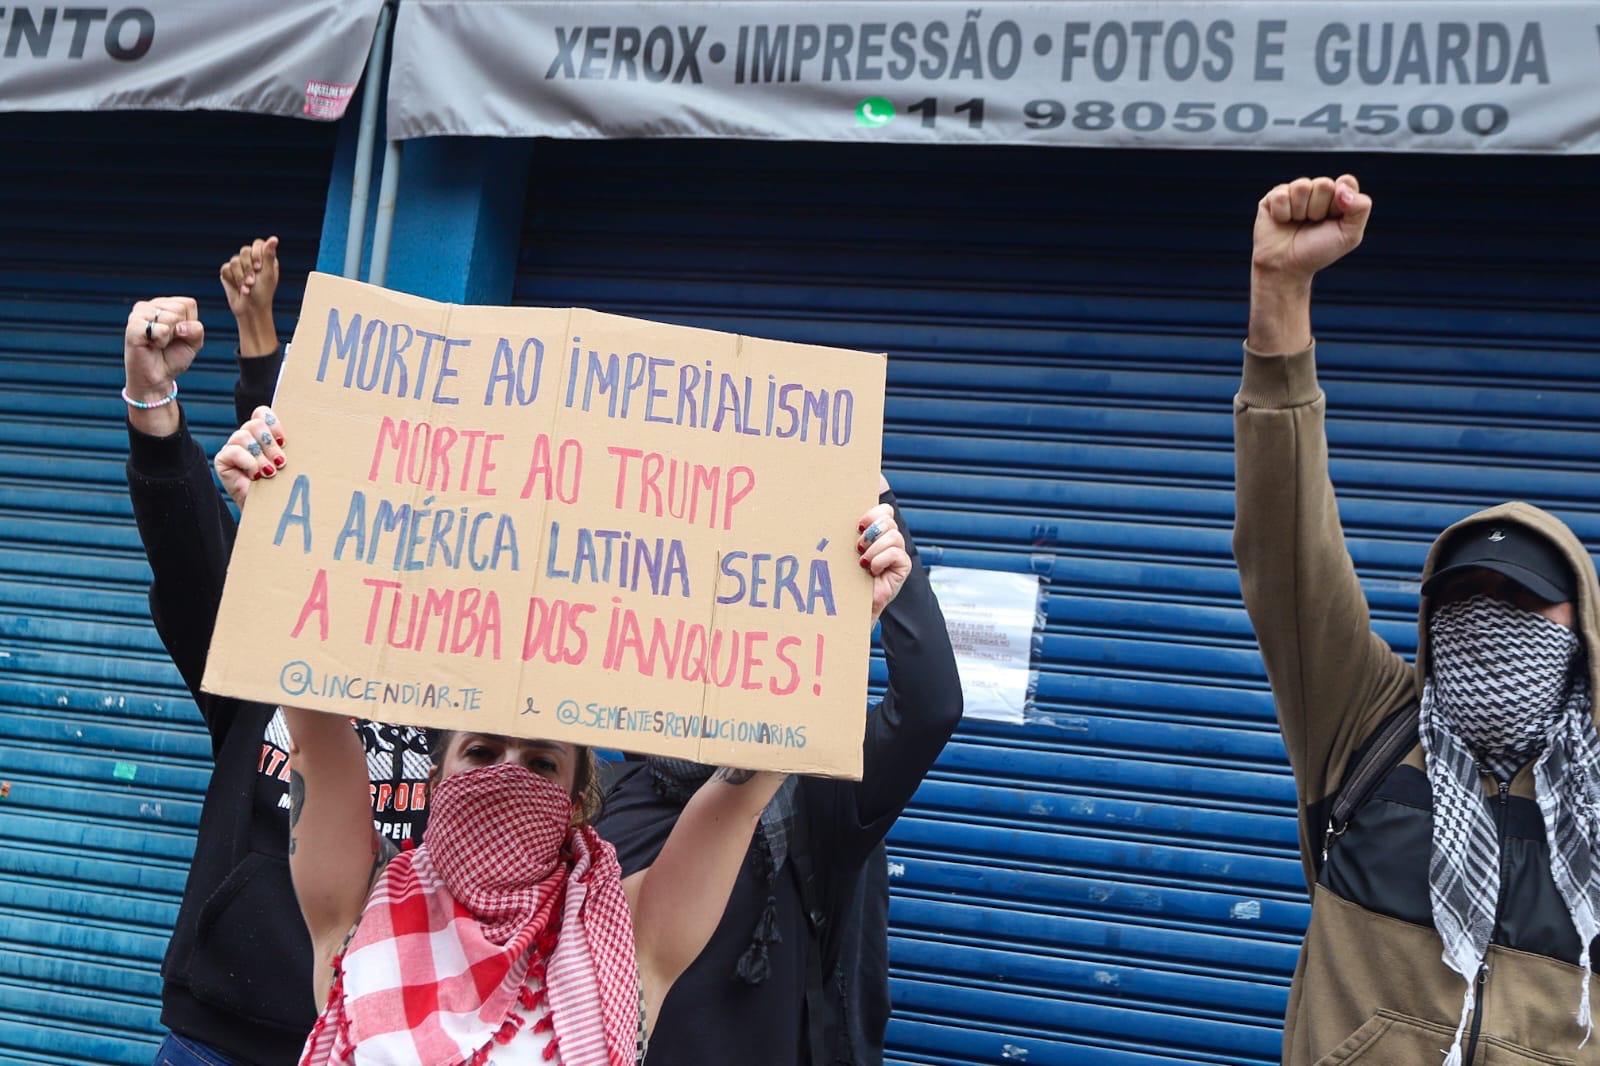 ENTO
XEROX•IMPRESSÃO•FOTOS E GUARDA
11 98050-4500
MORTE AO IMPERIALISMO
MORTE AO TRUMP
A AMÉRICA LATINA SERÁ
A TUMBA DOS IANQUES!
@INCENDIAR.TE e @SEMENTESREVOLUCIONARIAS